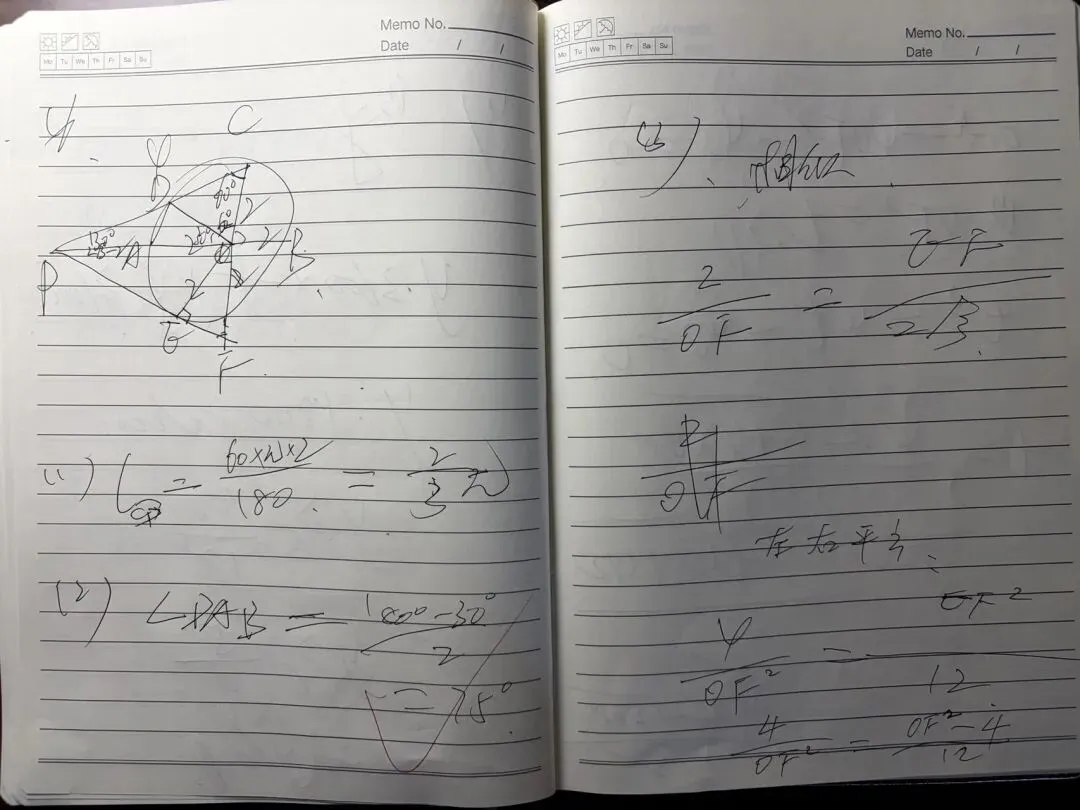 Memo No.
Date / /
Mo Tu We Th Fr Sa Su
C
D
60°
2
P
A
B
2
E
F
(1) l = 60×π×2/180 = 2/3 π
(2) ∠DAB = (180°-30°)/2
= 75°
Memo No.
Date / /
Mo Tu We Th Fr Sa Su
(3)
相似
2/OF = EF/2√3
左右平方
4/OF² = EF²/12
4/OF² = (OF²-4)/12